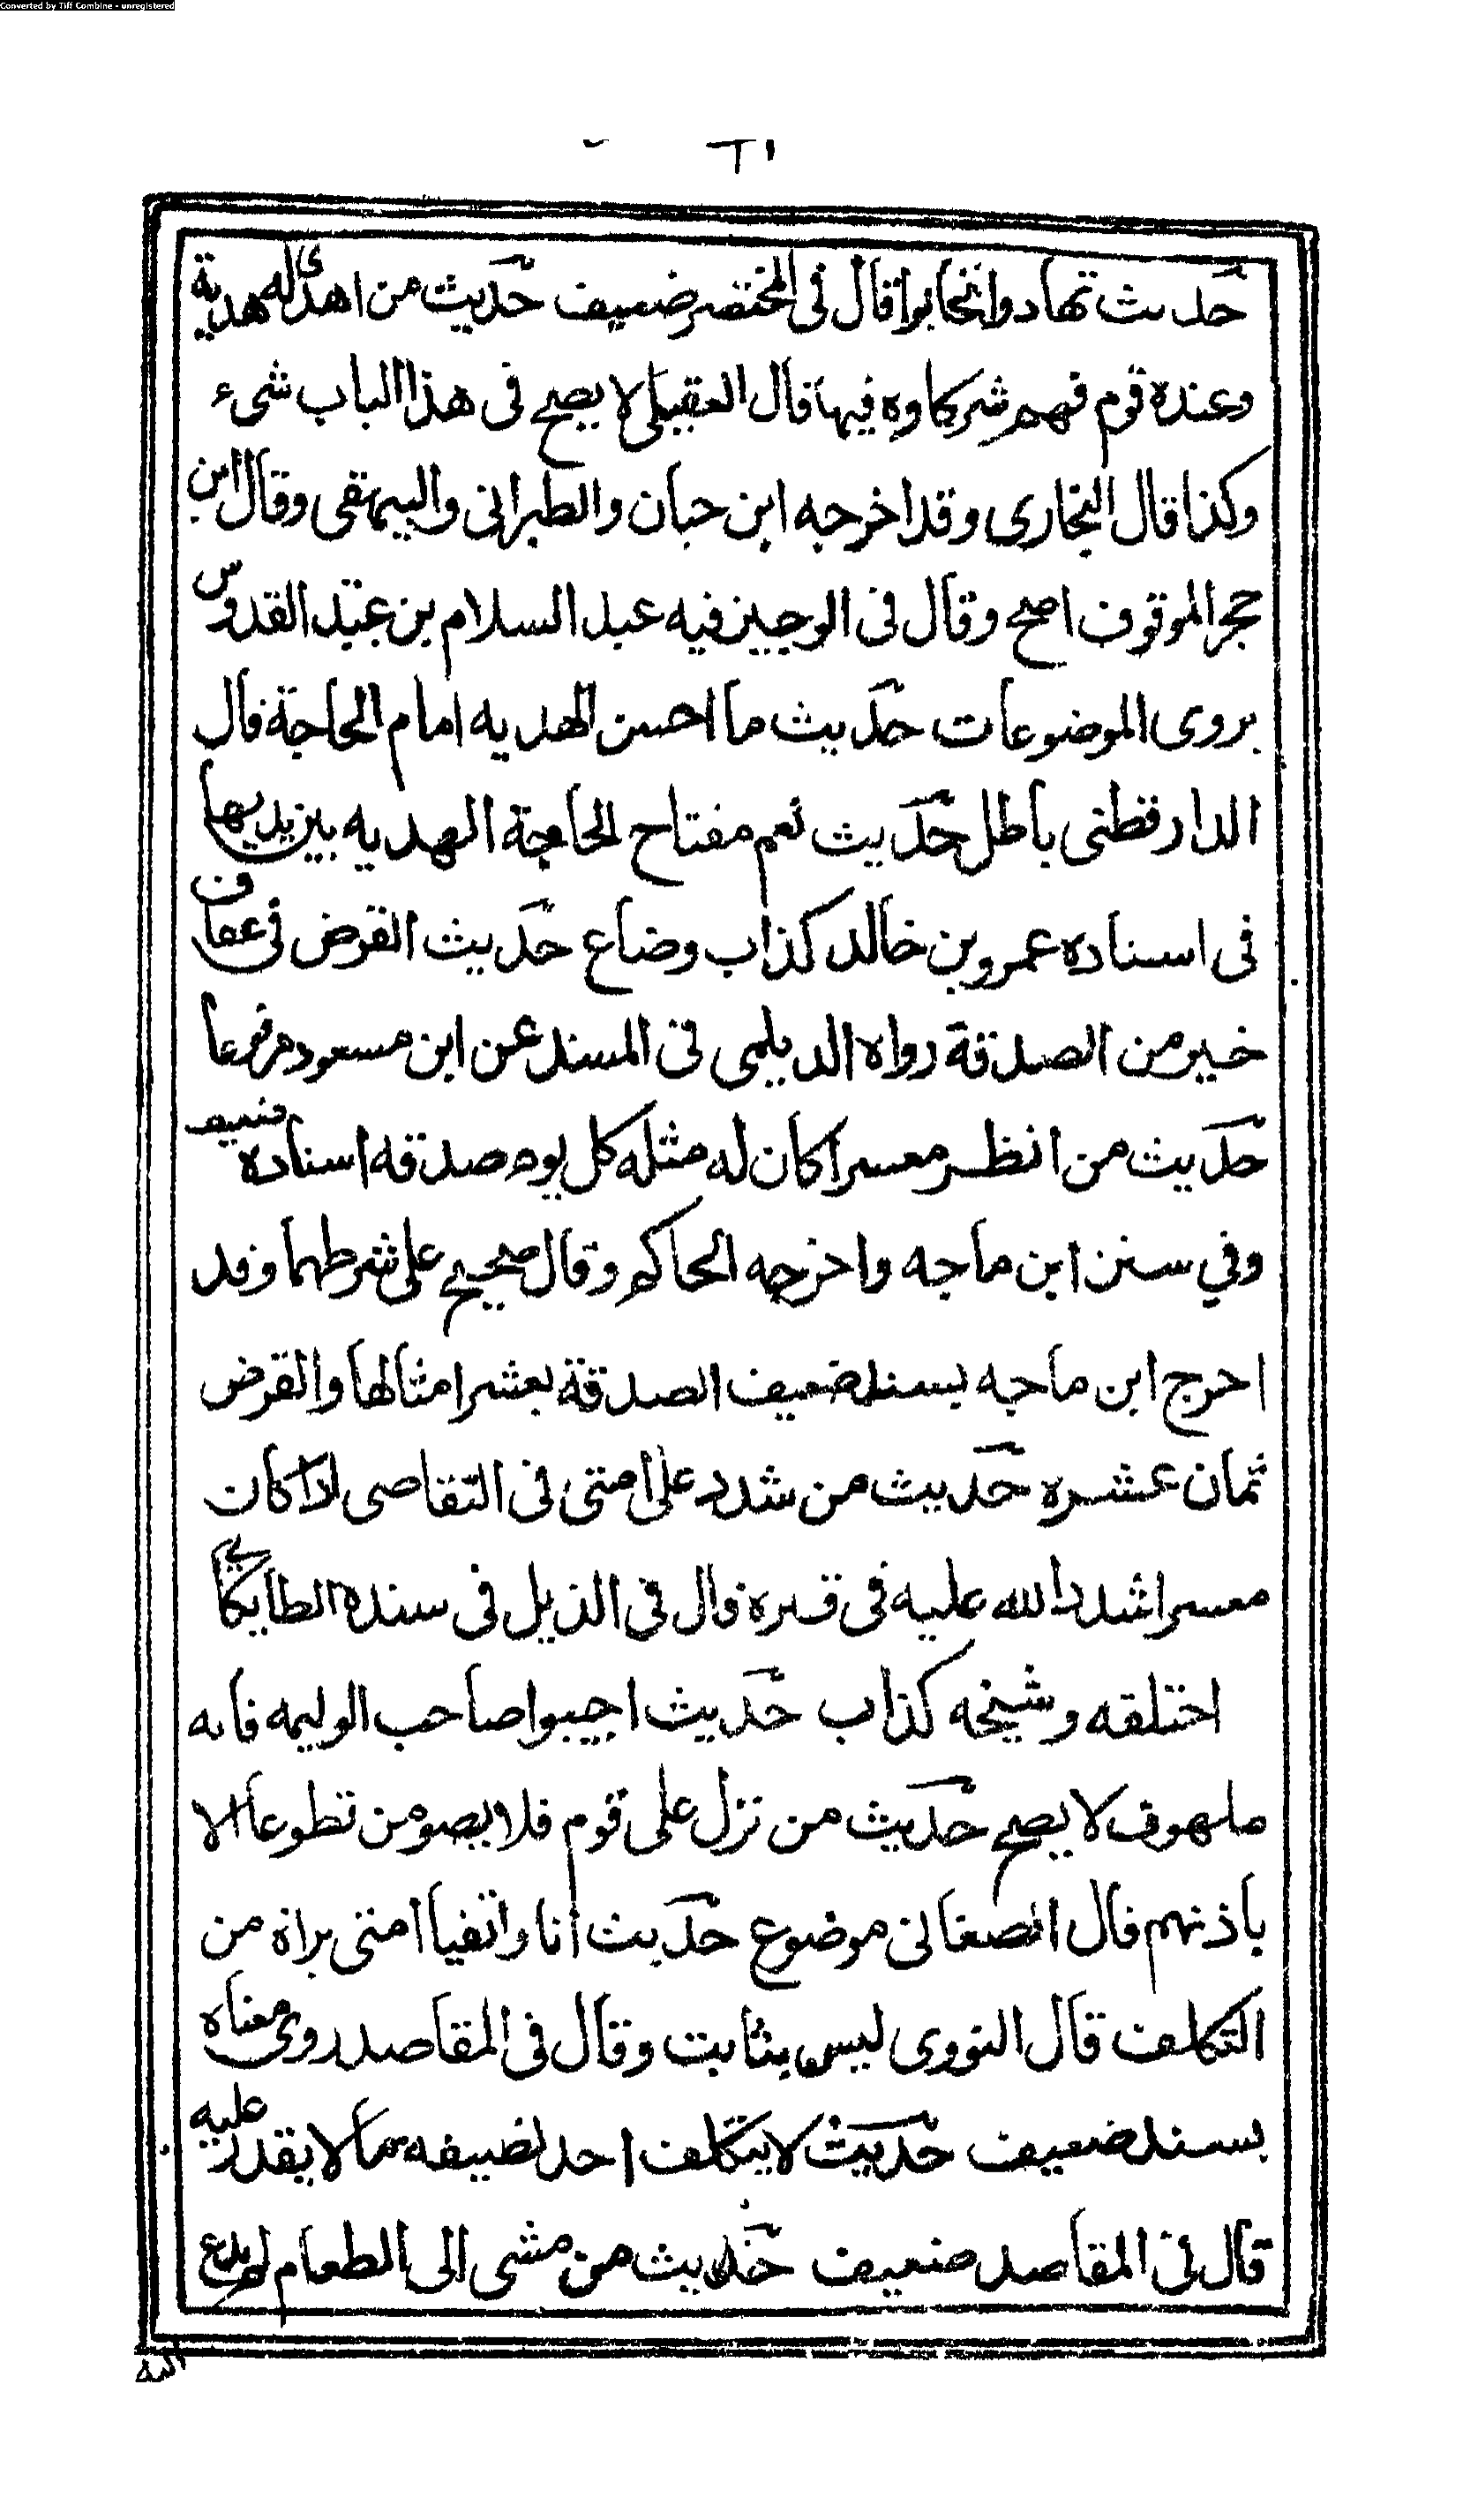 Converted by Tiff Combine - unregistered
حديث تهادوا تحابوا قال فى المختصر ضعيف حديث من اهدى له هدية
وعنده قوم فهم شركاوه فيها قال العقيلى لا يصح فى هذا الباب شىء
وكذا قال البخارى وقد اخرجه ابن حبان والطبرانى والبيهقى وقال ابن
حجر الموقوف اصح وقال فى الوجيز فيه عبد السلام بن عبد القدوس
يروى الموضوعات حديث ما احسن الهديه امام الحاجة قال
الدارقطنى باطل حديث نعم مفتاح الحاجة الهديه بين يديها
فى اسناده عمرو بن خالد كذاب وضاع حديث القرض فى عفاف
خير من الصدقة رواه الديلمى فى المسند عن ابن مسعود مرفوعا
حديث من انظر معسرا كان له مثله كل يوم صدقه اسناده ضعيف
وفي سنن ابن ماجه واخرجه الحاكم وقال صحيح على شرطهما وقد
اخرج ابن ماجه بسند ضعيف الصدقة بعشر امثالها والقرض
ثمان عشره حديث من شدد على امتى فى التقاصى اذا كان
معسرا شدد الله عليه فى قبره قال فى الذيل فى سنده الطايكاني
اختلقه وشيخه كذاب حديث اجيبوا صاحب الوليمه فانه
ملهوف لا يصح حديث من نزل على قوم فلا يصومن تطوعا الا
باذنهم قال الصغانى موضوع حديث انا واتقيا امتى براة من
التكلف قال النووى ليس بثابت وقال فى المقاصد روى معناه
بسند ضعيف حديث لا يتكلف احد لضيفه ما لا يقدر عليه
قال فى المقاصد ضعيف حديث من مشى الى الطعام لم يدع
اليه